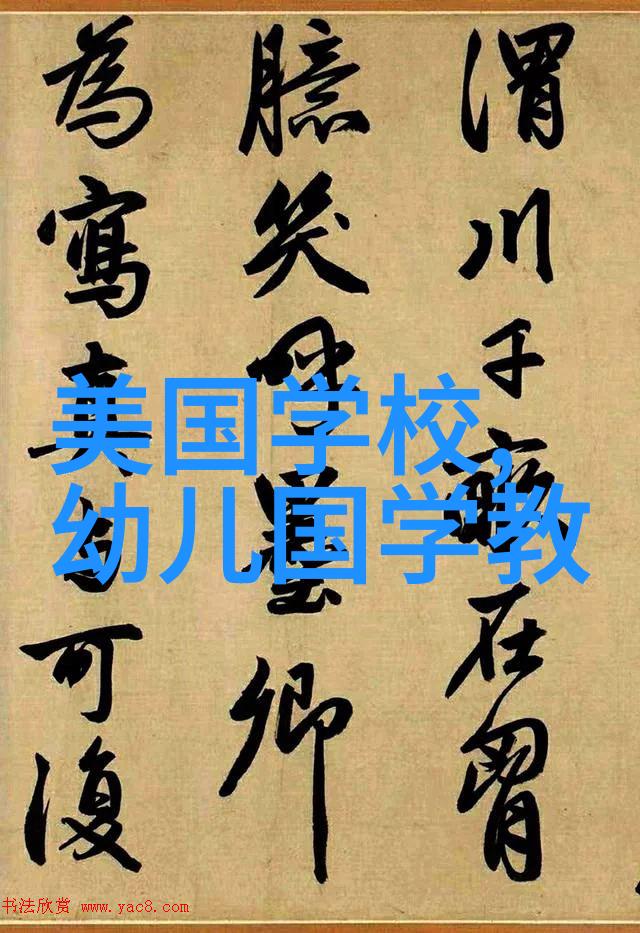 渭川千畝在胷
臆笑呼墨卿
為寫真与可復
美国学校,
幼儿国学教
书法欣赏 www.yac8.com